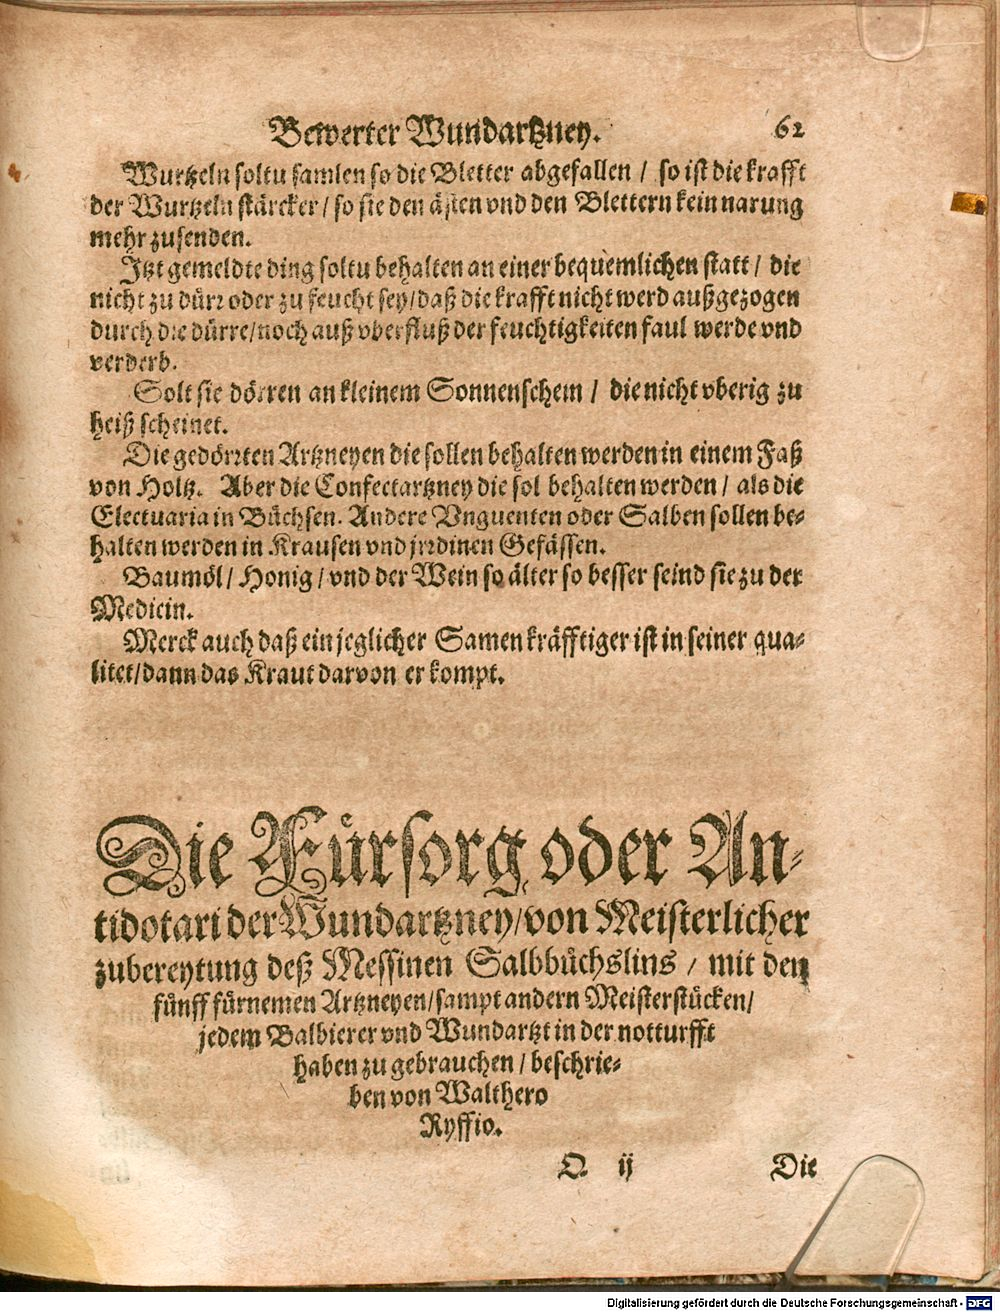 Bewerter Wundartzney. 62
Wurtzeln soltu samlen so die Bletter abgefallen / so ist die krafft
der Wurtzeln stärcker / so sie den ästen vnd den Blettern kein narung
mehr zusenden.
Jtzt gemeldte ding soltu behalten an einer bequemlichen statt / die
nicht zu dürr oder zu feucht sey / daß die krafft nicht werd außgezogen
durch die dürre / noch auß vberfluß der feuchtigkeiten faul werde vnd
verderb.
Solt sie dörren an kleinem Sonnenschein / die nicht vberig zu
heiß scheinet.
Die gedörrten Artzneyen die sollen behalten werden in einem Faß
von Holtz. Aber die Confectartzney die sol behalten werden / als die
Electuaria in Büchsen. Andere Vnguenten oder Salben sollen be-
halten werden in Krausen vnd jrrdinen Gefässen.
Baumöl / Honig / vnd der Wein so älter so besser seind sie zu der
Medicin.
Merck auch daß ein jeglicher Samen kräfftiger ist in seiner qua-
litet / dann das Kraut darvon er kompt.
Die Fürsorg oder An-
tidotari der Wundartzney / von Meisterlicher
zubereytung deß Messinen Salbbüchslins / mit den
fünff fürnemen Artzneyen / sampt andern Meisterstücken /
jedem Balbierer vnd Wundartzt in der notturfft
haben zu gebrauchen / beschrie-
ben von Walthero
Ryffio.
O ij Die
Digitalisierung gefördert durch die Deutsche Forschungsgemeinschaft - DFG